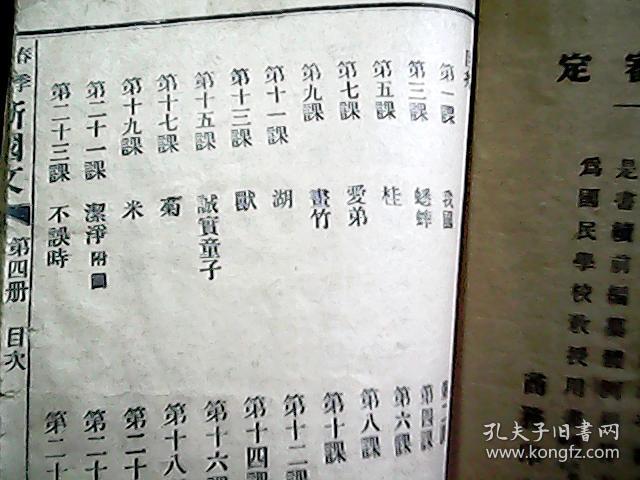 定
是書續前編纂體例
爲國民學校教授用
商
目次
第一課 我國
第三課 蟋蟀
第五課 桂
第七課 愛弟
第九課 畫竹
第十一課 湖
第十三課 獸
第十五課 誠實童子
第十七課 菊
第十九課 米
第二十一課 潔淨附圖
第二十三課 不誤時
第四課
第六課
第八課
第十課
第十二課
第十四課
第十六課
第十八
第二十
第二十
第二十
春季 新國文 第四册 目次
孔夫子旧书网
www.kongfz.com